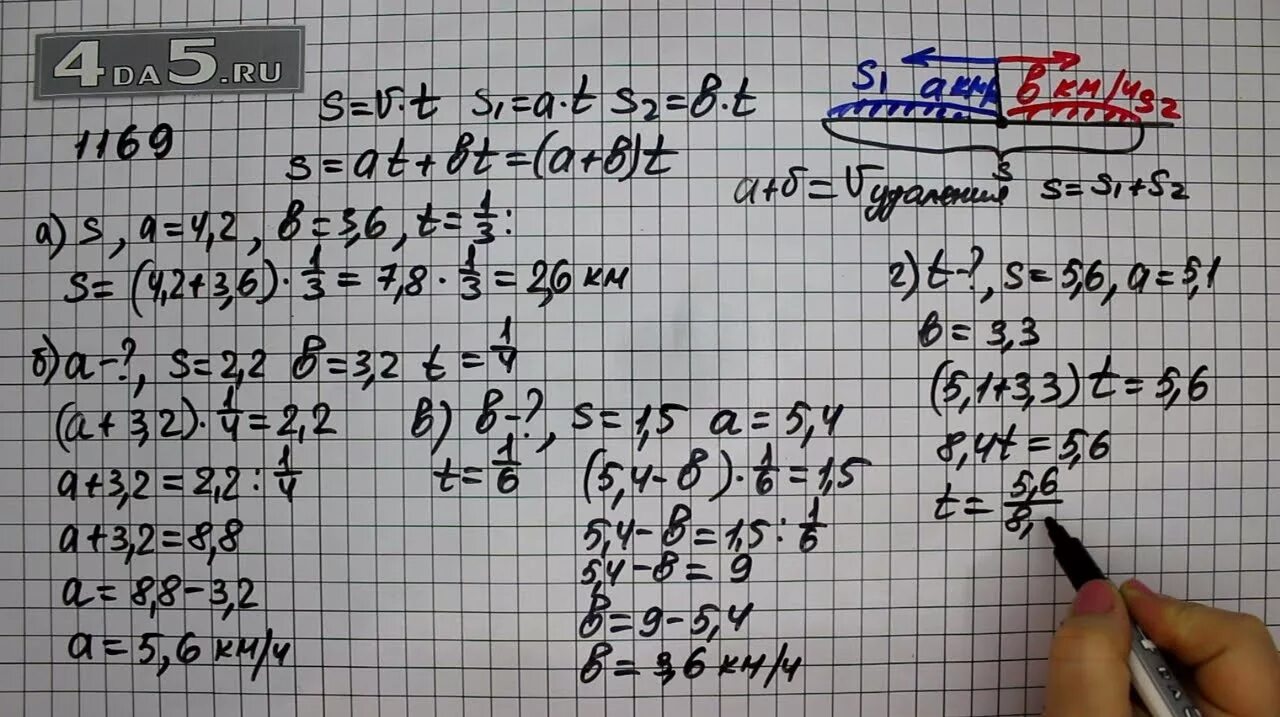 4DA5.RU
1169
S=v·t S₁=a·t S₂=в·t
S=at+вt=(a+в)t
S₁ a км/ч в км/ч S₂
S
a+б=Vудаления S=S₁+S₂
а) S, a=4,2, в=3,6, t=1/3:
S=(4,2+3,6)·1/3=7,8·1/3=2,6 км
б) a-?, S=2,2 в=3,2 t=1/4
(a+3,2)·1/4=2,2
a+3,2=2,2:1/4
a+3,2=8,8
a=8,8-3,2
a=5,6 км/ч
в) в-?, S=1,5 a=5,4
t=1/6 (5,4-в)·1/6=1,5
5,4-в=1,5:1/6
5,4-в=9
в=9-5,4
в=3,6 км/ч
г) t-?, S=5,6, a=5,1
в=3,3
(5,1+3,3)t=5,6
8,4t=5,6
t=5,6/8,